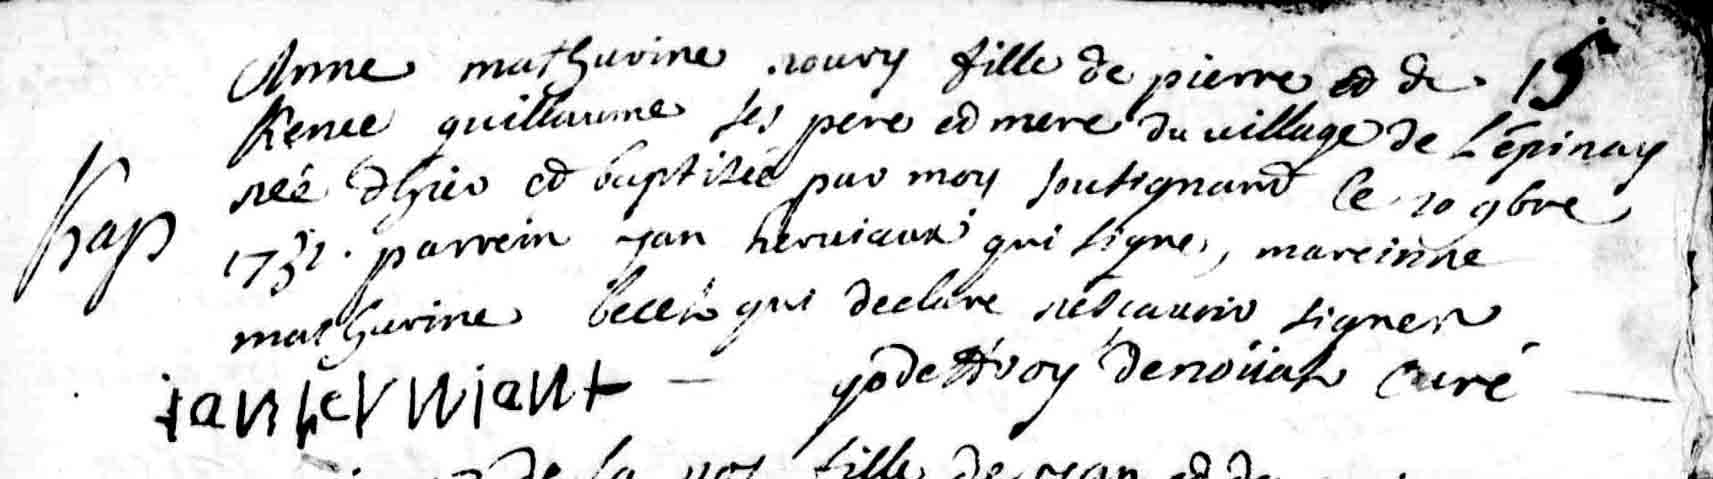 Anne mathurine noury fille de pierre et de 15
Renee guillaume ses pere et mere du village de Lépinay
neé d'hier et baptiseé par moy soussignant ce 20 9bre
1732. parrein jan herviaux qui signe, mareinne
Bap
mathurine becel qui declare ne scavoir signer
jan herviaux godeffroy denoüal Curé
de la noe fille de jan et de